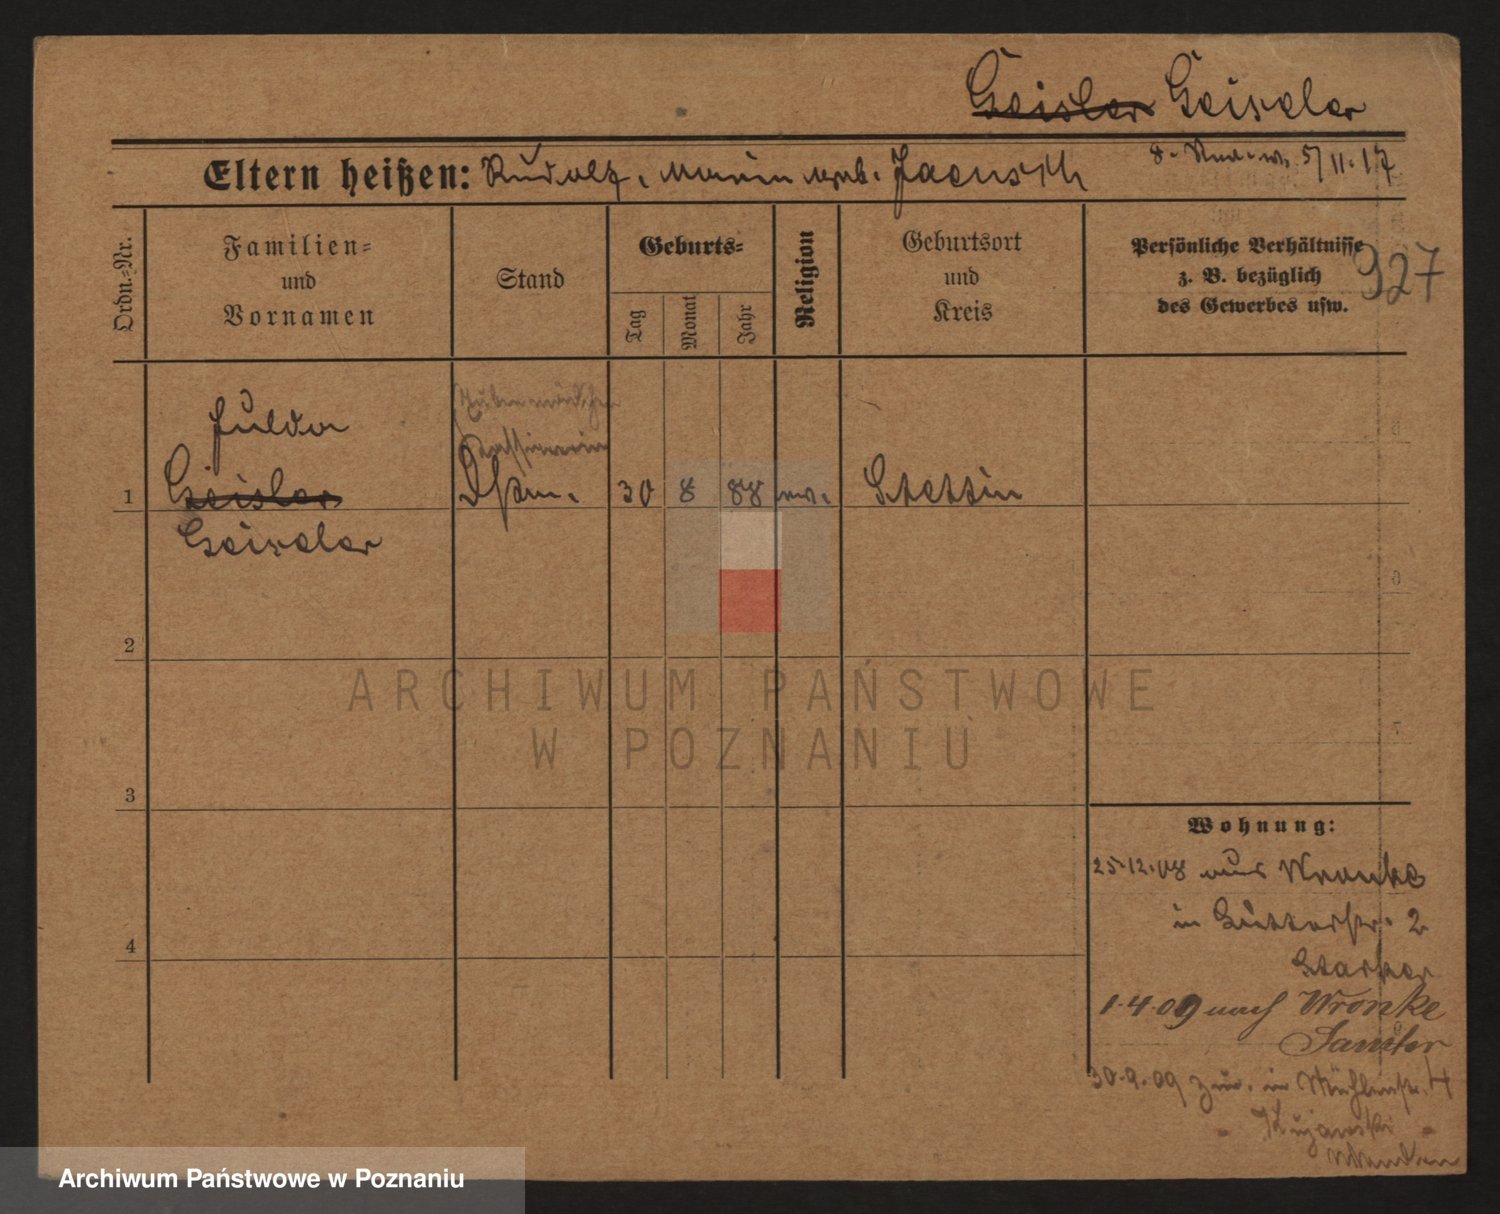 Geisler Geiseler
Eltern heißen: Rudolf, Marie geb. Jaensch
5/11.17
Ordn.=Nr.
Familien=
und
Vornamen
Stand
Geburts=
Tag
Monat
Jahr
Religion
Geburtsort
und
Kreis
Persönliche Verhältnisse
z. B. bezüglich
des Gewerbes usw.
927
Hulda
1 Geisler 30 8 88 ev. Stettin
Geiseler
2
3
4
ARCHIWUM PAŃSTWOWE
W POZNANIU
Wohnung:
25.12.08 aus Wronke
in 2
1.4.09 nach Wronke
Samter
30.9.09 zur. in Mühlenstr. 4
Kujawski
Archiwum Państwowe w Poznaniu